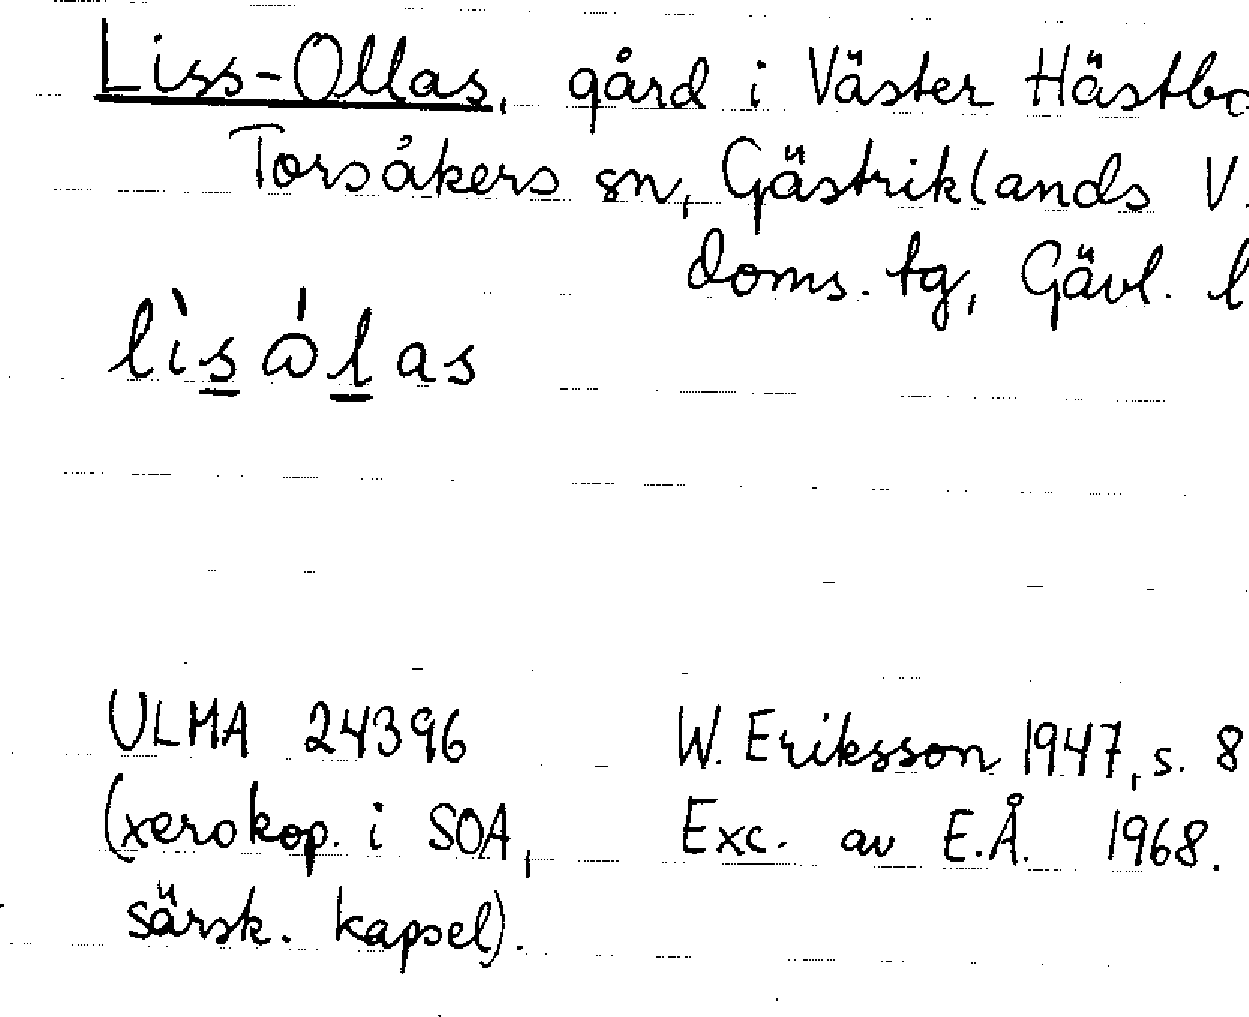 Liss-Ollas, gård i Väster Hästbo
Torsåkers sn, Gästriklands V.
doms. tg, Gävl. l
lìsálas
ULMA 24396 W. Eriksson 1947, s. 8
(xerokop. i SOA, Exc. av E.Å. 1968.
särsk. kapsel).